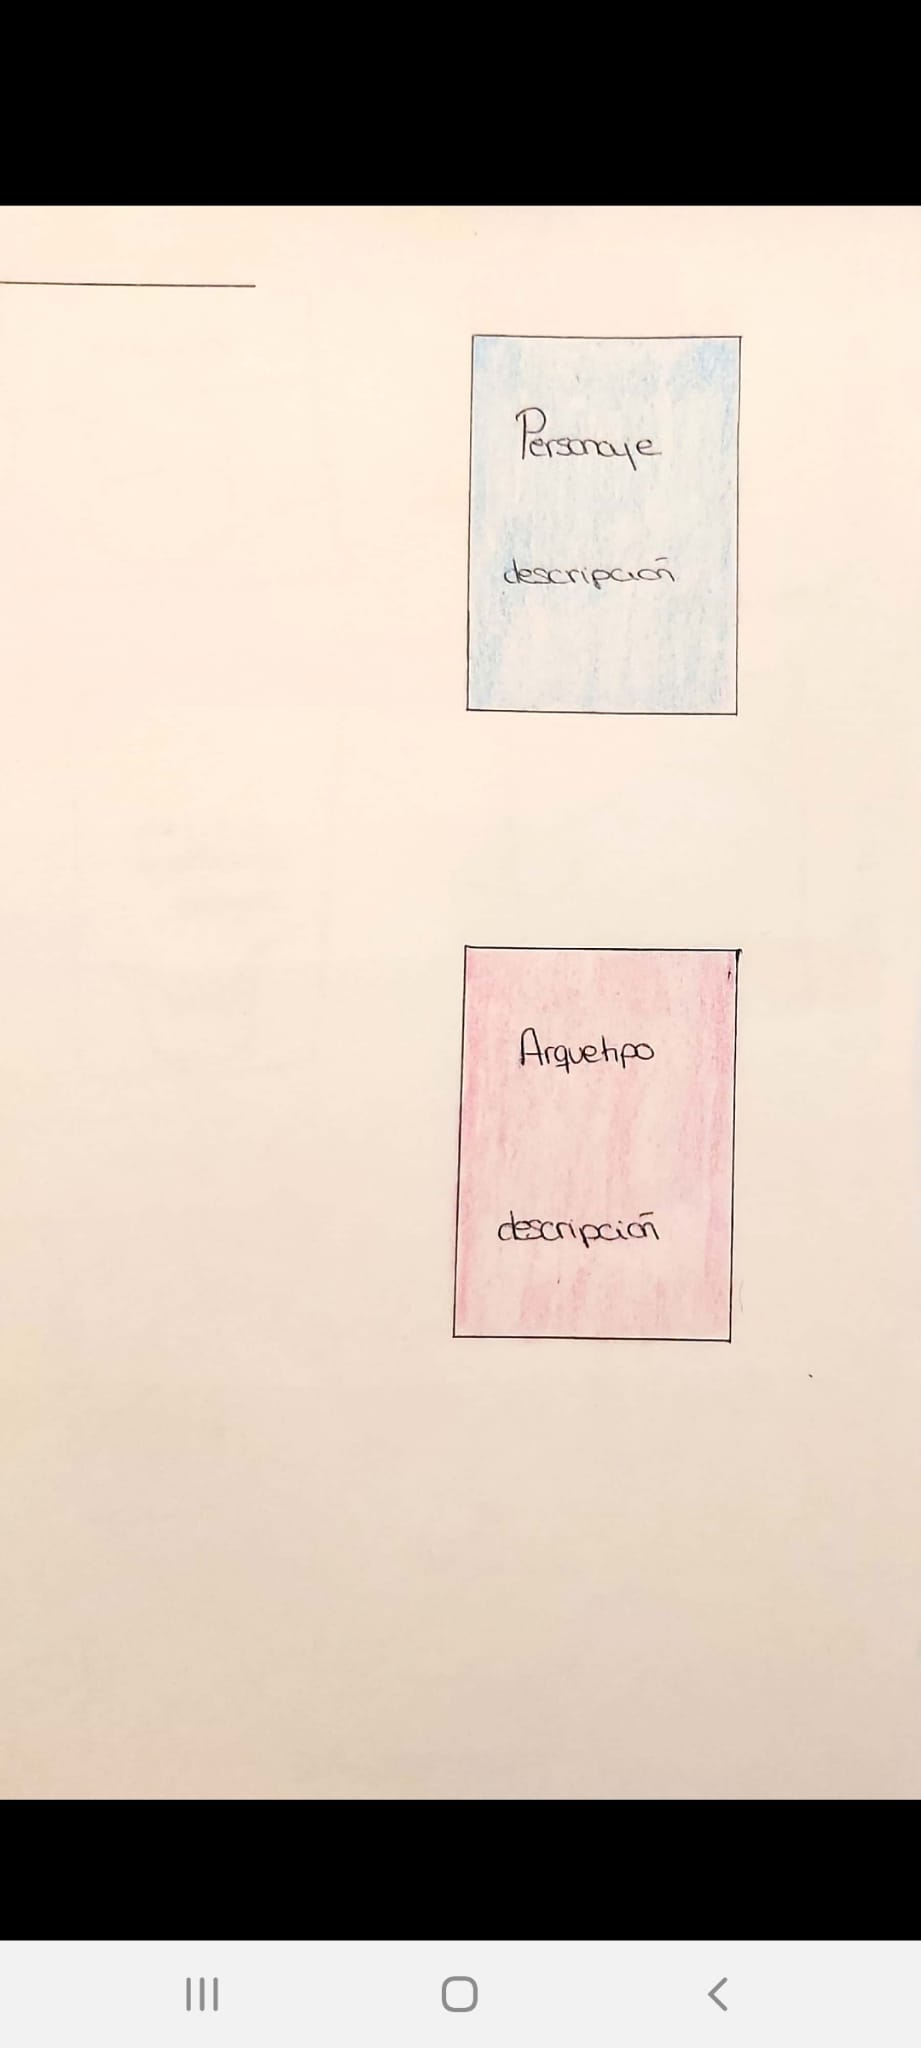 Personaje
descripción
Arquetipo
descripción